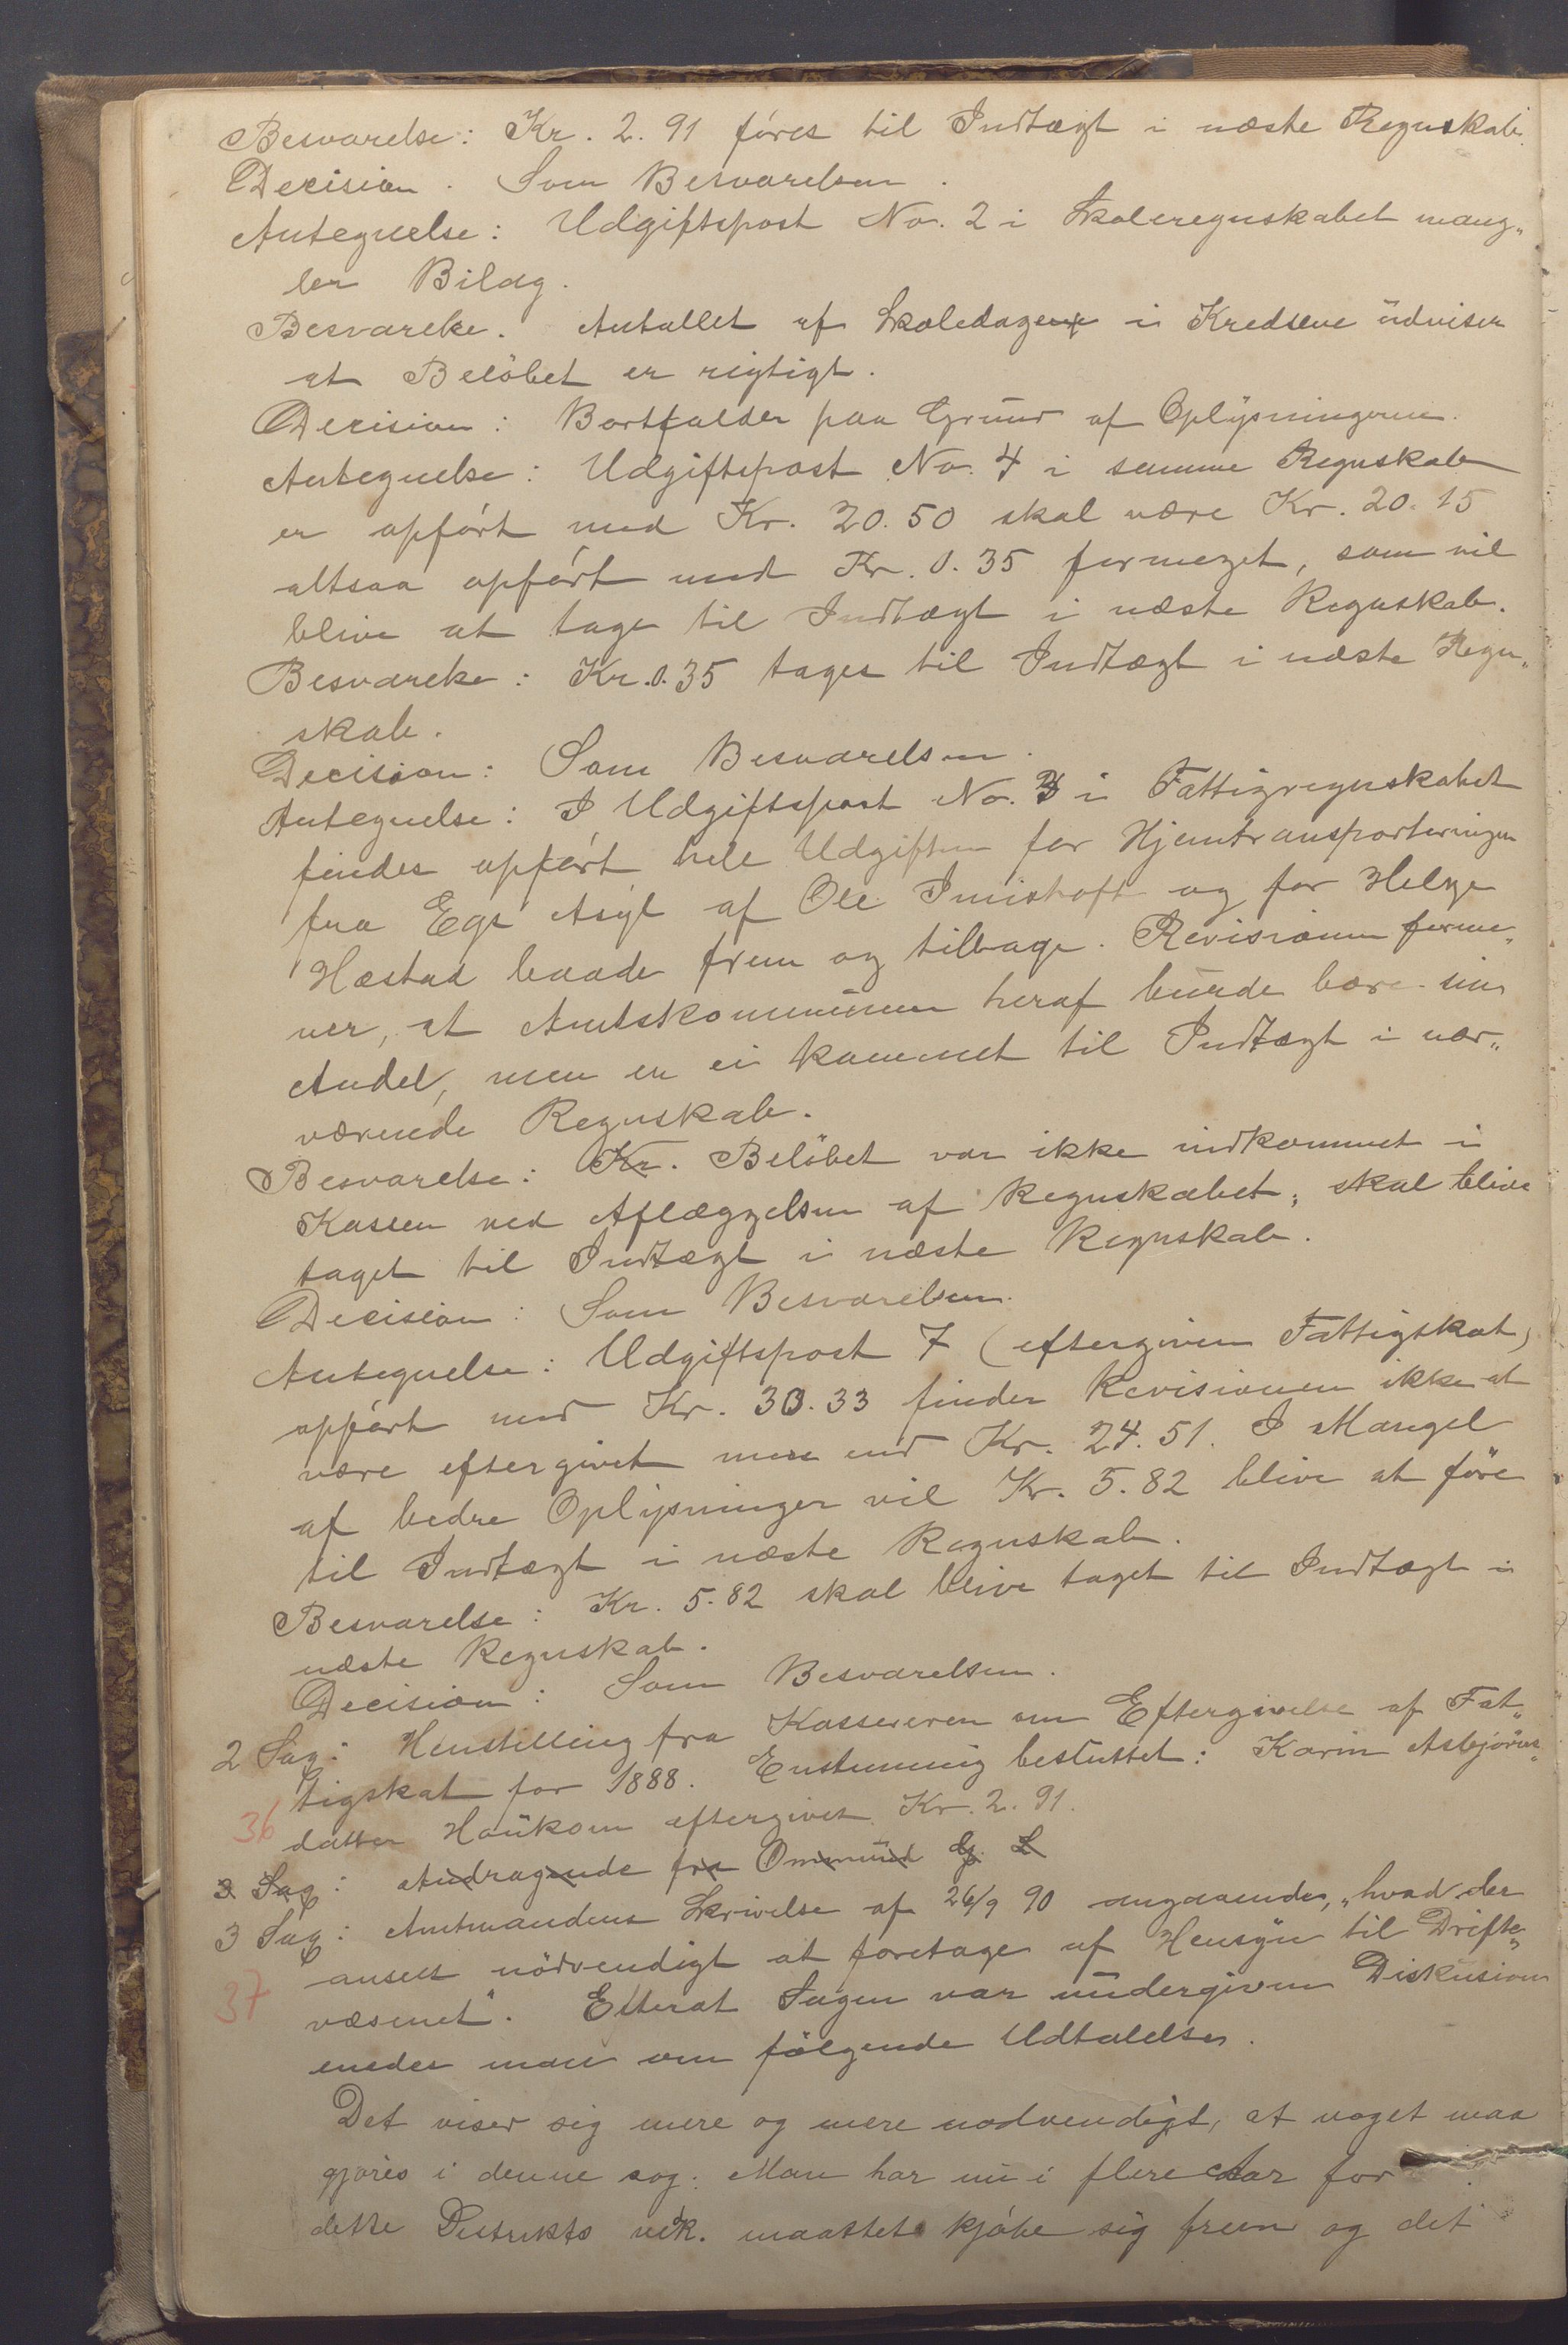 Besvarelse: Kr. 2. 91 föres til Indtægt i næste Regnskab.
Decision. Som Besvarelsen.
Antegnelse: Udgiftspost No. 2 i Skoleregnskabet mang„
ler Bilag.
Besvarelse. Antallet af Skoledage i Kredsene udviser
at Belöbet er rigtigt.
Decision: Bortfalder paa Grund af Oplysningerne.
Antegnelse: Udgiftspost No. 4 i samme Regnskab
er opfört med Kr. 20. 50 skal være Kr. 20. 15
altsaa opfört med Kr. 0. 35 formeget, som vil
blive at tage til Indtægt i næste Regnskab.
Besvarelse: Kr. 0. 35 tages til Indtægt i næste Regn„
skab.
Decision: Som Besvarelsen.
Antegnelse: I Udgiftspost No. 3 i Fattigregnskabet
findes opfört hele Udgiften for Hjemtransporteringen
fra Egs Asyl af Ole og for Helge
Hæstad baade frem og tilbage. Revisionen forme„
ner, at Amtskommunen heraf burde bære sin
Andel, men er ei kommet til Indtægt i nær„
værende Regnskab.
Besvarelse: Kr. Belöbet var ikke indkommet i
Kassen ved Aflæggelsen af Regnskabet; skal blive
taget til Indtægt i næste Regnskab.
Decision: Som Besvarelsen.
Antegnelse: Udgiftspost 7 (eftergiven Fattigskat)
opfört med Kr. 30. 33 finder Revisionen ikke at
være eftergivet mere end Kr. 24. 51. I Mangel
af bedre Oplysninger vil Kr. 5. 82 blive at före
til Indtægt i næste Regnskab.
Besvarelse: Kr. 5. 82 skal blive taget til Indtægt i
næste Regnskab.
Decision: Som Besvarelsen.
2 Sag: Henstilling fra Kassereren om Eftergivelse af Fat„
tigskat for 1888. Enstemmig besluttet: Karin Asbjörns„
36 datter Haukom eftergivet Kr. 2. 91.
3 Sag: Andragende fra Ommund G. L
3 Sag: Amtmandens Skrivelse af 26/9 90 angaaende, „hvad der
ansees nödvendigt at foretage af Hensyn til Drifte„
37 væsenet". Efterat Sagen var undergiven Diskusion
enedes man om fölgende Udtalelse.
Det viser sig mere og mere nodvendigt, at noget maa
gjöres i denne sag. Man har nu i flere Aar for
dette Distrikts vedk. maattet kjöbe sig frem og det